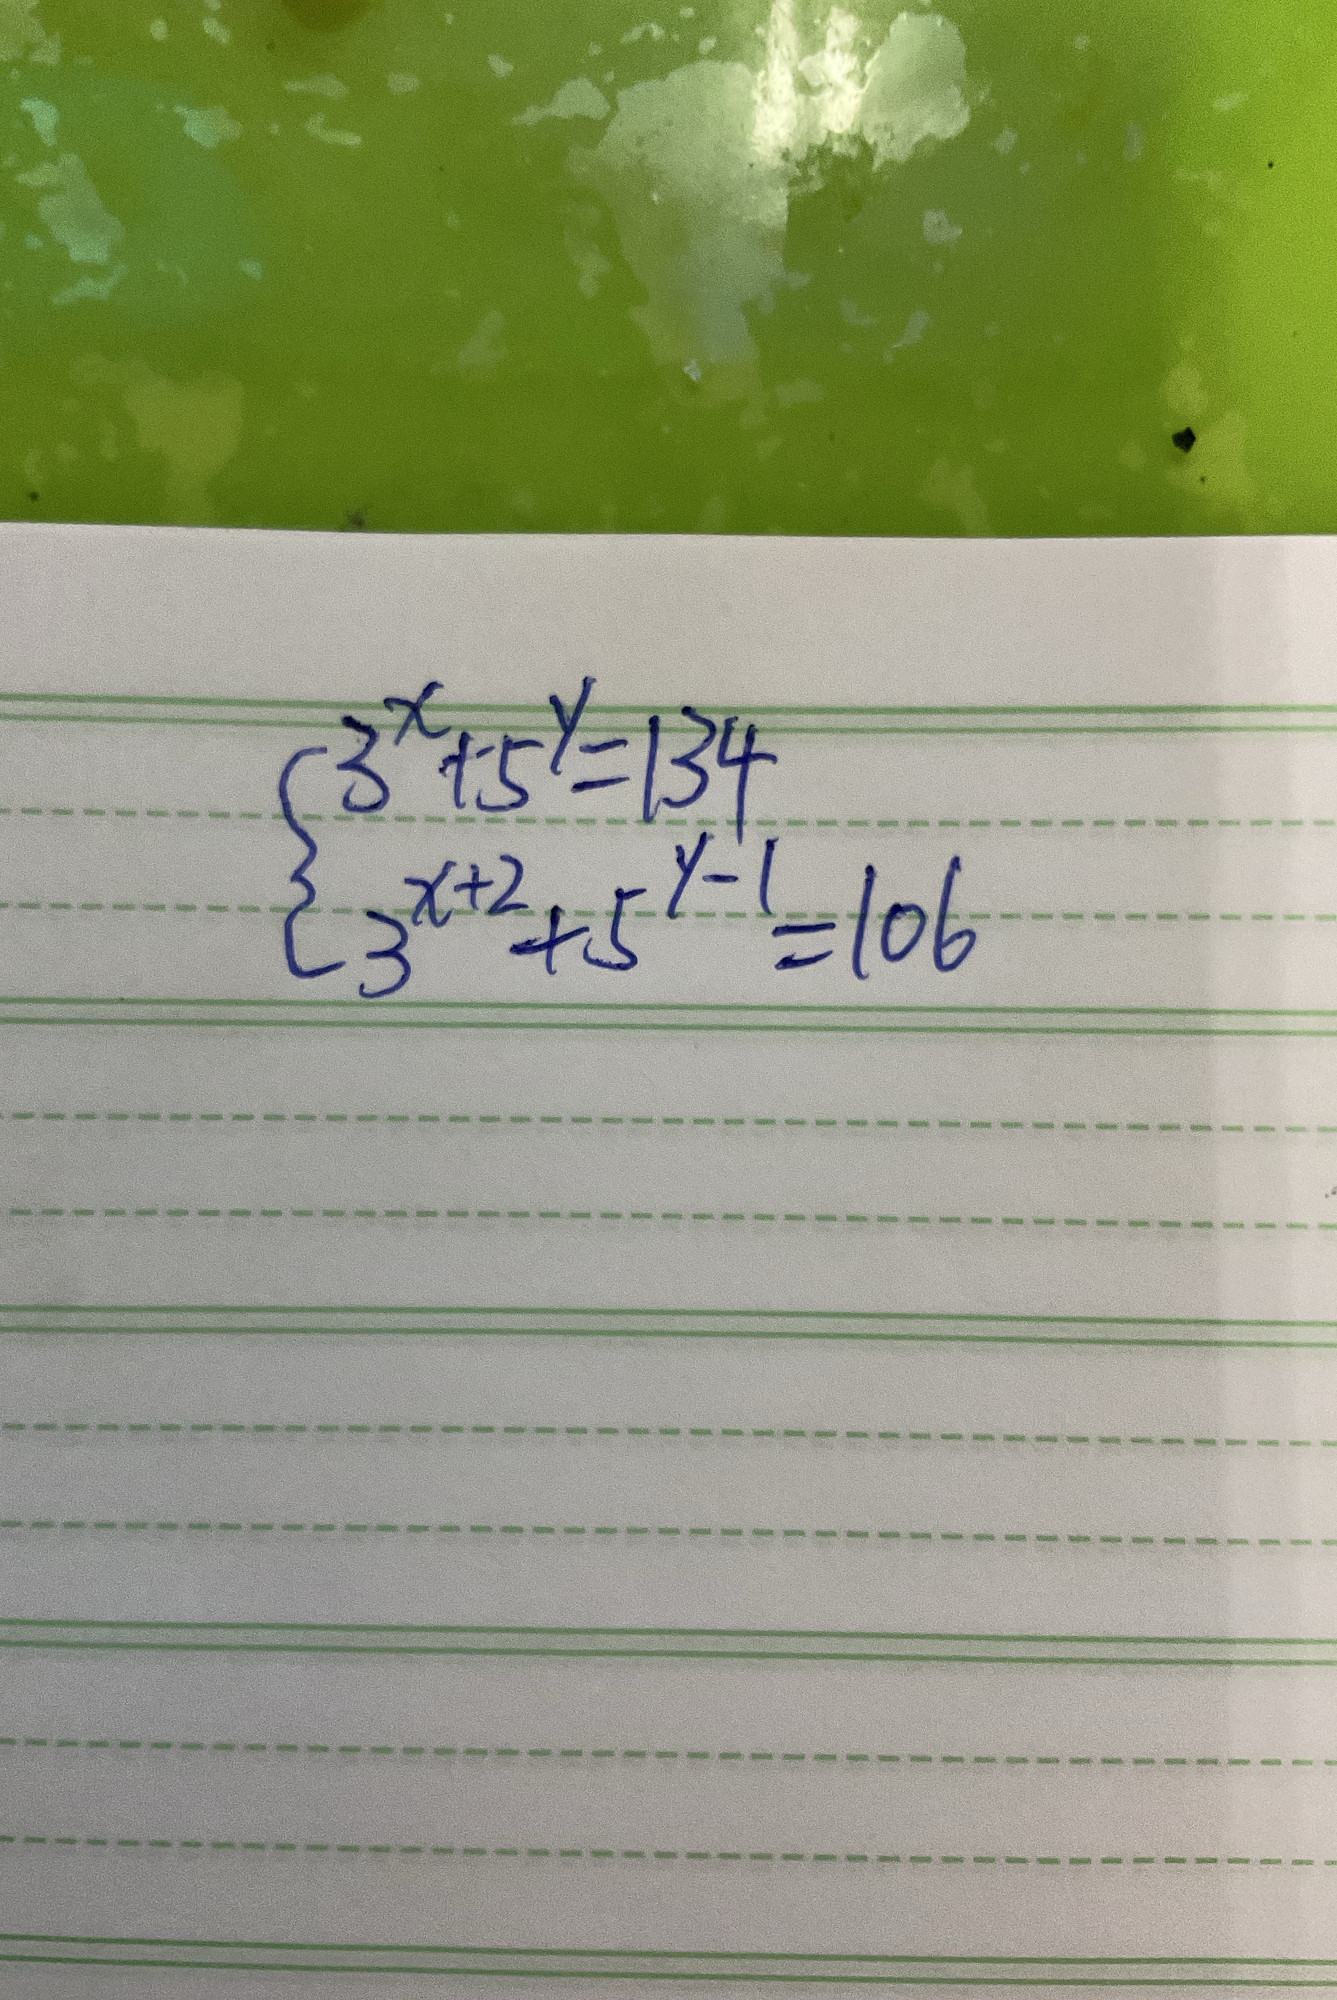 {3^x+5^y=134
3^{x+2}+5^{y-1}=106